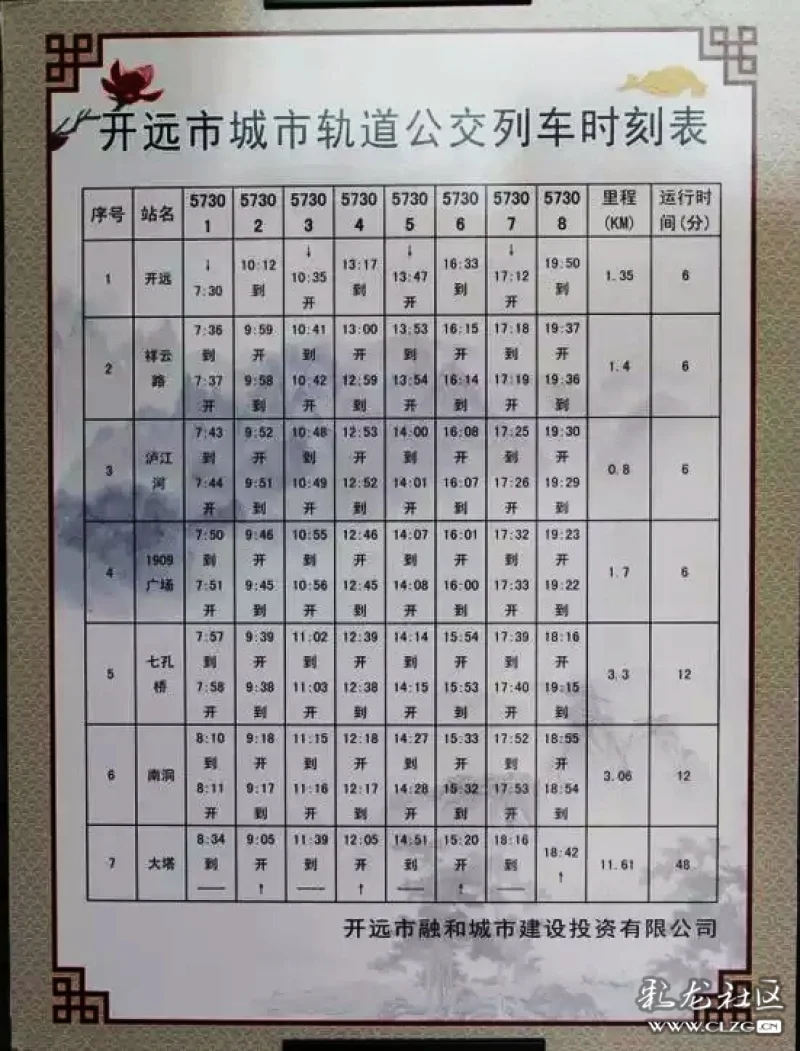 开远市城市轨道公交列车时刻表
序号 站名 57301 57302 57303 57304 57305 57306 57307 57308 里程(KM) 运行时间(分)
1 开远 ↓ 7:30 10:12 到 ↓ 10:35 开 13:17 到 ↓ 13:47 开 16:33 到 ↓ 17:12 开 19:50 到 1.35 6
2 祥云路 7:36 到 7:37 开 9:59 开 9:58 到 10:41 到 10:42 开 13:00 开 12:59 到 13:53 到 13:54 开 16:15 开 16:14 到 17:18 到 17:19 开 19:37 开 19:36 到 1.4 6
3 泸江河 7:43 到 7:44 开 9:52 开 9:51 到 10:48 到 10:49 开 12:53 开 12:52 到 14:00 到 14:01 开 16:08 开 16:07 到 17:25 到 17:26 开 19:30 开 19:29 到 0.8 6
4 1909广场 7:50 到 7:51 开 9:46 开 9:45 到 10:55 到 10:56 开 12:46 开 12:45 到 14:07 到 14:08 开 16:01 开 16:00 到 17:32 到 17:33 开 19:23 开 19:22 到 1.7 6
5 七孔桥 7:57 到 7:58 开 9:39 开 9:38 到 11:02 到 11:03 开 12:39 开 12:38 到 14:14 到 14:15 开 15:54 开 15:53 到 17:39 到 17:40 开 18:16 开 19:15 到 3.3 12
6 南洞 8:10 到 8:11 开 9:18 开 9:17 到 11:15 到 11:16 开 12:18 开 12:17 到 14:27 到 14:28 开 15:33 开 15:32 到 17:52 到 17:53 开 18:55 开 18:54 到 3.06 12
7 大塔 8:34 到 —— 9:05 开 ↑ 11:39 到 —— 12:05 开 ↑ 14:51 到 —— 15:20 开 ↑ 18:16 到 —— 18:42 ↑ 11.61 48
开远市融和城市建设投资有限公司
彩龙社区
www.CLZG.CN